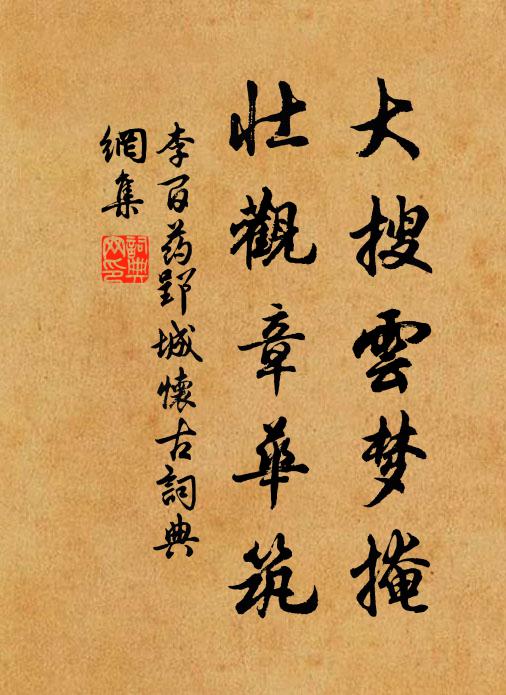 大搜雲梦掩
壮觀章華筑
李百药郢城懷古詞典
網集
詞典
网印